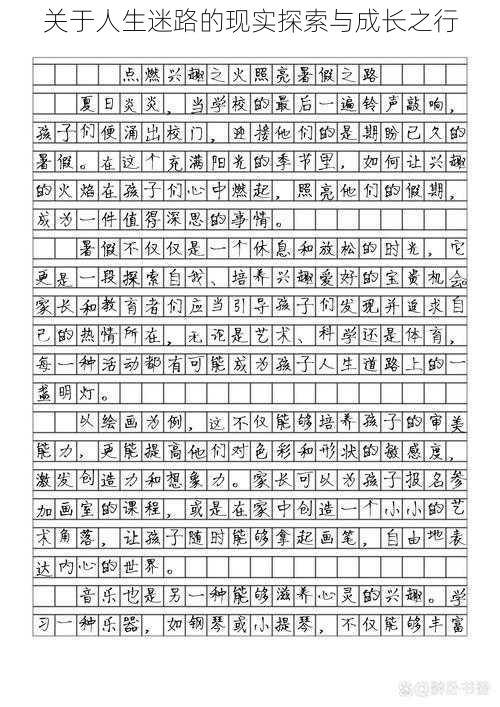 关于人生迷路的现实探索与成长之行
点燃兴趣之火照亮暑假之路
夏日炎炎，当学校的最后一遍铃声敲响，
孩子们便涌出校门，迎接他们的是期盼已久的
暑假。在这个充满阳光的季节里，如何让兴趣
的火焰在孩子们心中燃起，照亮他们的假期，
成为一件值得深思的事情。
暑假不仅仅是一个休息和放松的时光，它
更是一段探索自我、培养兴趣爱好的宝贵机会
家长和教育者们应当引导孩子们发现并追求自
己的热情所在，无论是艺术、科学还是体育，
每一种活动都有可能成为孩子人生道路上的一
盏明灯。
以绘画为例，这不仅能够培养孩子的审美
能力，更能提高他们对色彩和形状的敏感度，
激发创造力和想象力。家长可以为孩子报名参
加画室的课程，或是在家中创造一个小小的艺
术角落，让孩子随时能够拿起画笔，自由地表
达内心的世界。
音乐也是另一种能够滋养心灵的兴趣。学
习一种乐器，如钢琴或小提琴，不仅能够丰富